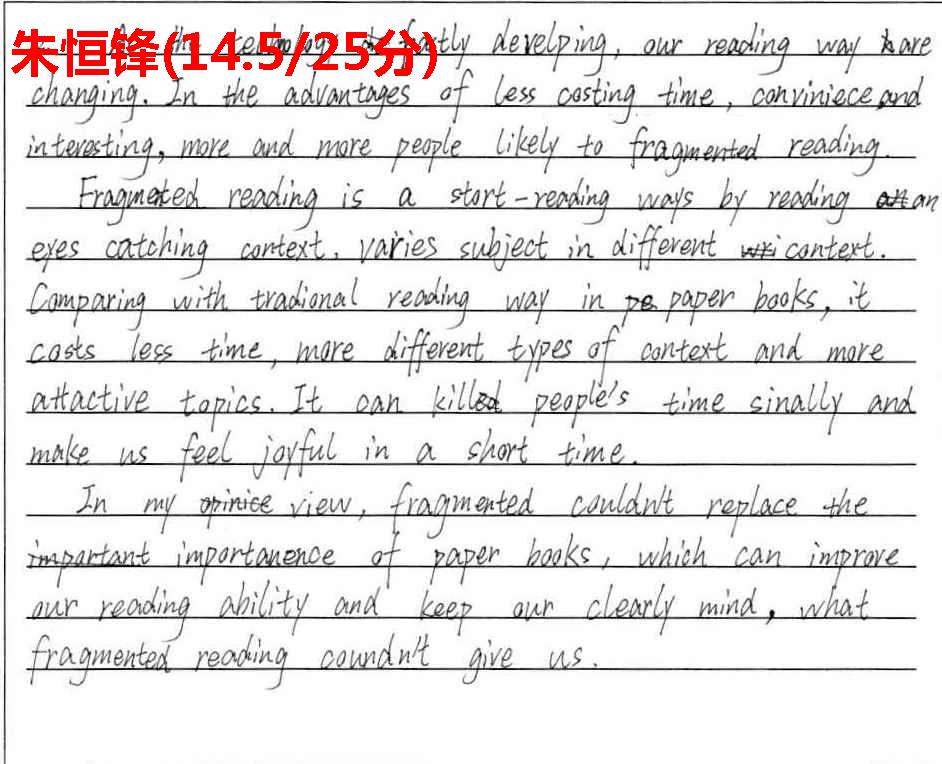 朱恒锋(14.5/25分)
the technology fastly develping, our reading way are
changing. In the advantages of less costing time, conviniece and
interesting, more and more people likely to fragmented reading.
Fragmented reading is a start-reading ways by reading an
eyes catching context, varies subject in different context.
Comparing with tradional reading way in paper books, it
costs less time, more different types of context and more
attactive topics. It can kill people's time sinally and
make us feel joyful in a short time.
In my view, fragmented couldn't replace the
importanence of paper books, which can improve
our reading ability and keep our clearly mind, what
fragmented reading coundn't give us.